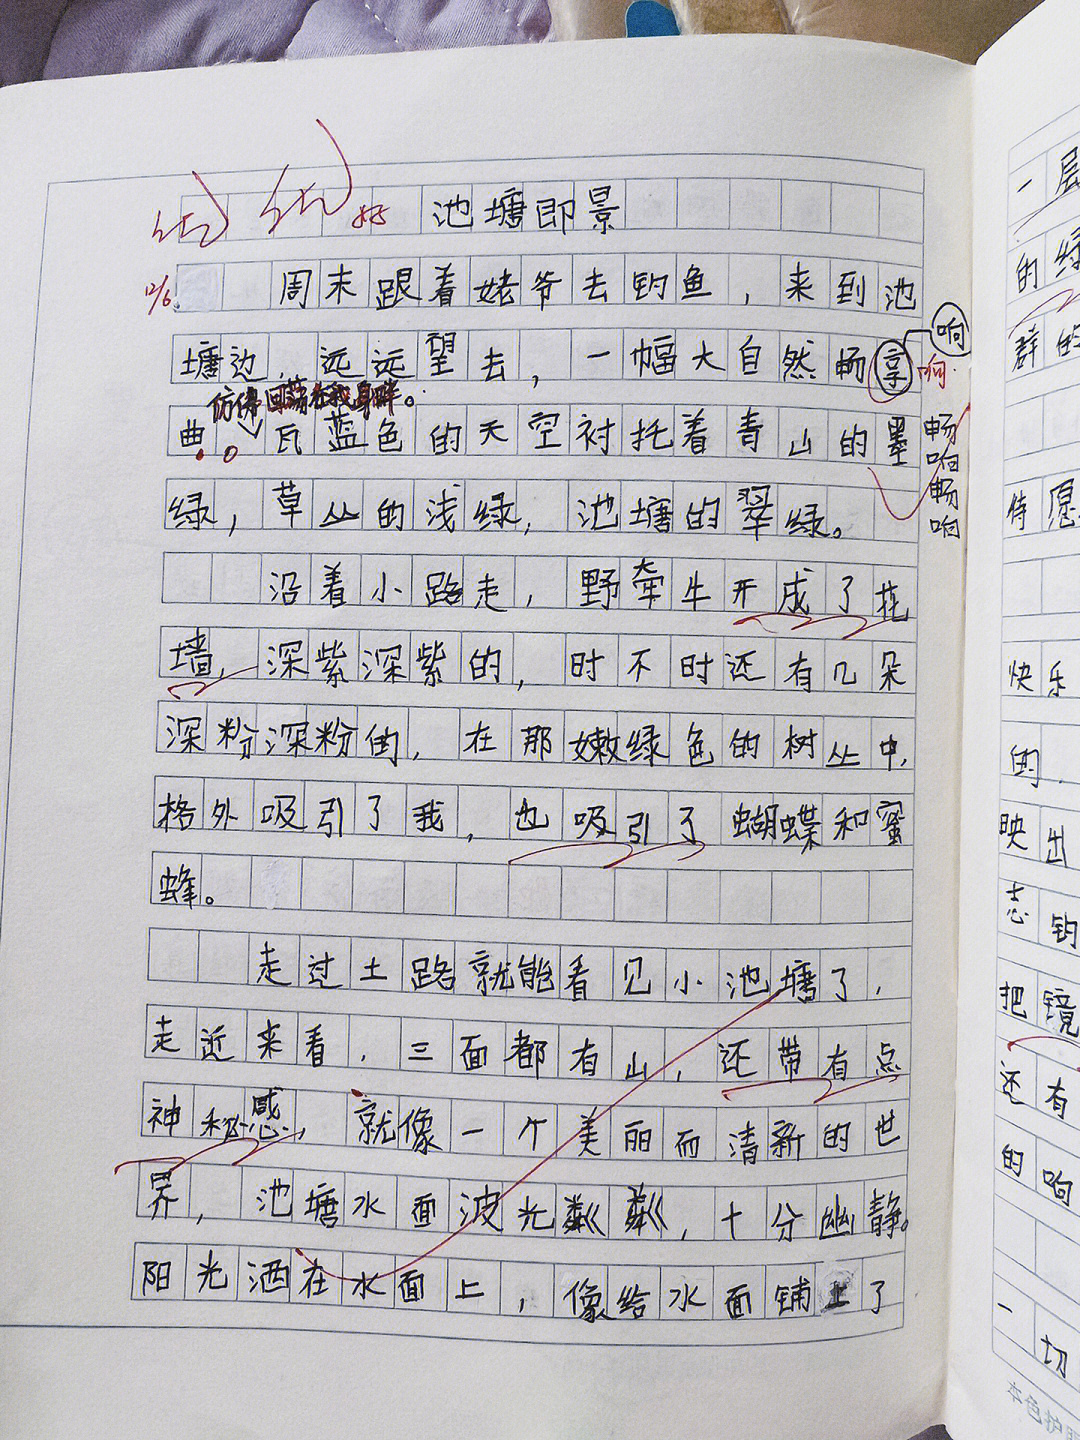 优 优 好 池塘即景
12/6.
周末跟着姥爷去钓鱼，来到池
塘边，远远望去，一幅大自然畅享
响
响
仿佛回荡在我身畔。
曲。瓦蓝色的天空衬托着青山的墨
畅响畅响
绿，草丛的浅绿，池塘的翠绿。
沿着小路走，野牵牛开成了花
墙，深紫深紫的，时不时还有几朵
深粉深粉的，在那嫩绿色的树丛中，
格外吸引了我，也吸引了蝴蝶和蜜
蜂。
走过土路就能看见小池塘了，
走近来看，三面都有山，还带有点
神秘感，就像一个美丽而清新的世
界，池塘水面波光粼粼，十分幽静。
阳光洒在水面上，像给水面铺上了
一层
的绿
群的
待愿
快乐
的
映出
志钓
把镜
还有
的响
一切